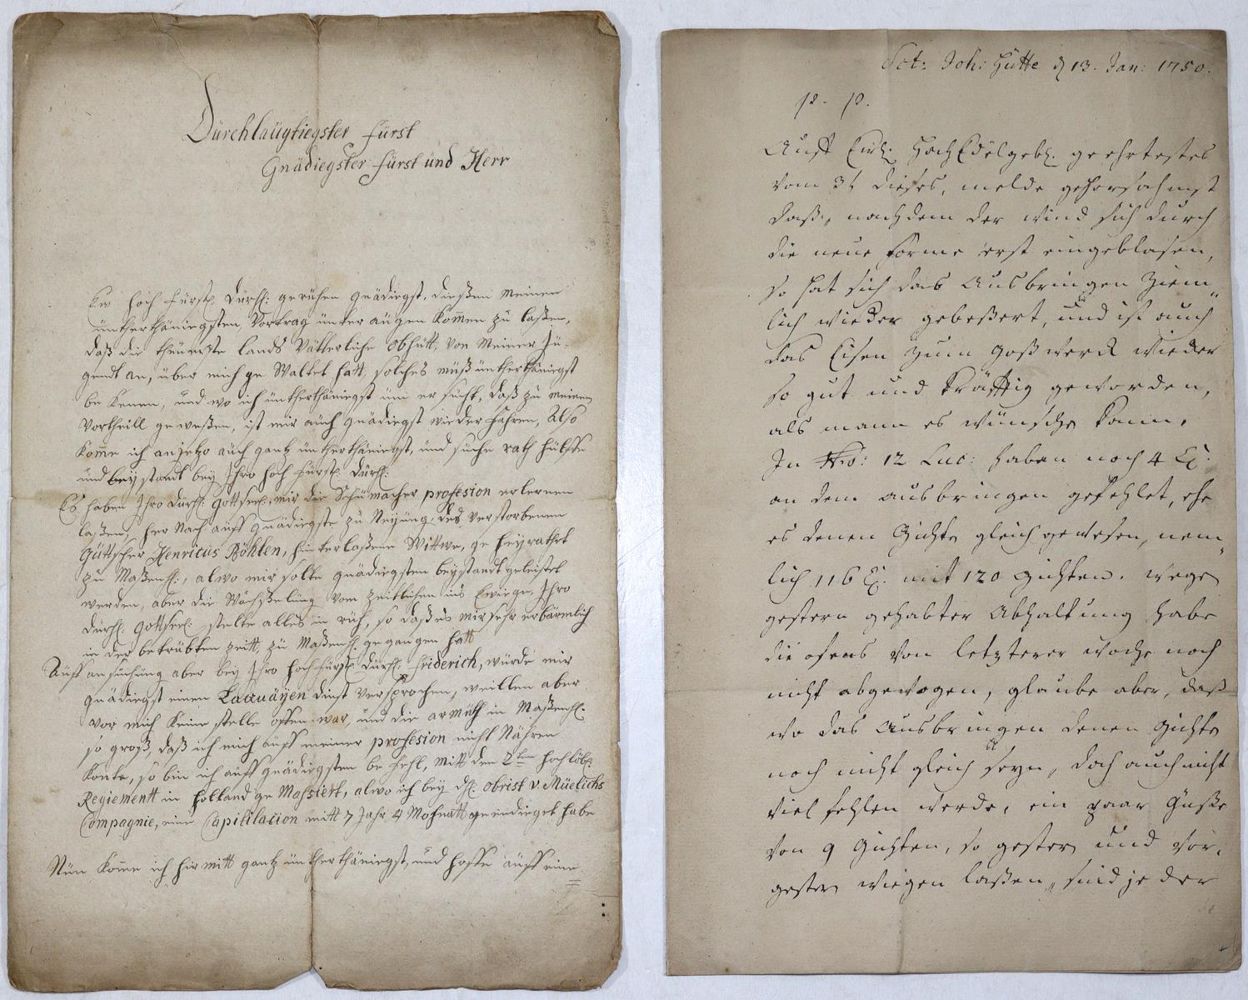 Dürchlaügtiegster fürst
Gnädiegster fürst ünd Herr
Ew Hoch fürstl. Dürchl: gerühen gnädiegst, dießen meinen
üntherthäniegsten Vortrag ünter aügen kom̄en zü laßen,
daß die theüreste lands Vätterliche obhütt, von meiner Jü-
gendt an, über mich ge Waltet hatt, solches müß üntherthäniegst
be kenen, ünd wo ich üntherthäniegst üm er sücht, daß zü meinen
Vortheill geweßen, ist mir aüch gnädiegst wieder fahren, Also
kom̄e ich anjetzo aüch gantz üntherthäniegst, ünd süche rath hülffe
ünd bey standt bey Ihro Hoch fürstl. Dürchl:
Es haben Ihro Dürchl: Gottseel. mir die Schümacher profesion erlernen
laßen, her nach aüff gnädiegste zü Neigüng, des verstorbenen
Henricus Böhlen, hinterlaßene Wittwe, ge heyrathet
zü, alwo mir solte gnädiegsten beystandt geleistet
werden, aber die Wächßelüng vom zeitlichen ins Ewiege, Ihro
Dürchl: Gottseel. stelte alles in rüh, so daß es mir sehr erbärmlich
in der betrübten zeitt, zü gegangen hatt
Aüff ansüchüng aber bey Ihro Hochfürstl. Dürchl. friderich, würde mir
gnädiegst einen Laquäyen dinst versprochen, weillen aber
vor mich keine stelle offen war, ünd die armüth in
so groß, daß ich mich aüff meiner profession nicht Nähren
konte, so bin ich aüff gnädiegsten be fehl, mitt den 2ten
Regiementt in Holland ge Marsiert, alwo ich bey H. obrist v: Müelichs
Compagnie, eine Capitilation mitt 7 Jahr 4 Mohnatt geendieget habe
Nün kom̄e ich hir mitt gantz üntherthäniegst, ünd hoffe aüff eine
Sct: Joh: Hütte d 13. Jan: 1750.
p. p.
Auff Ewl: HochEdelgeb. geehrtestes
vom 3t dieses, melde gehorsahmst
daß, nachdem der wind sich durch
die neue Forme erst eingeblasen,
so hat sich das Ausbringen ziem„
lich wieder gebeßert, und ist auch
das Eisen zum Goßwerck wieder
so gut und kräfftig geworden,
als mann es wünschen kann.
In Nro: 12 Luc: haben noch 4 Ct.
an dem ausbringen gefehlet, ehe
es denen Gichten gleich gewesen, nem„
lich 116 Ct. mit 120 Gichten. wegen
gestern gehabter Abhaltung habe
die ofens von letzterer woche noch
nicht abgewogen, glaube aber, daß
wo das Ausbringen denen Gichten
noch nicht gleich seyn, doch auch nicht
viel fehlen werde, ein paar Güße
von 9 Gichten, so gestern und vor„
gestern wiegen laßen, sind jeder